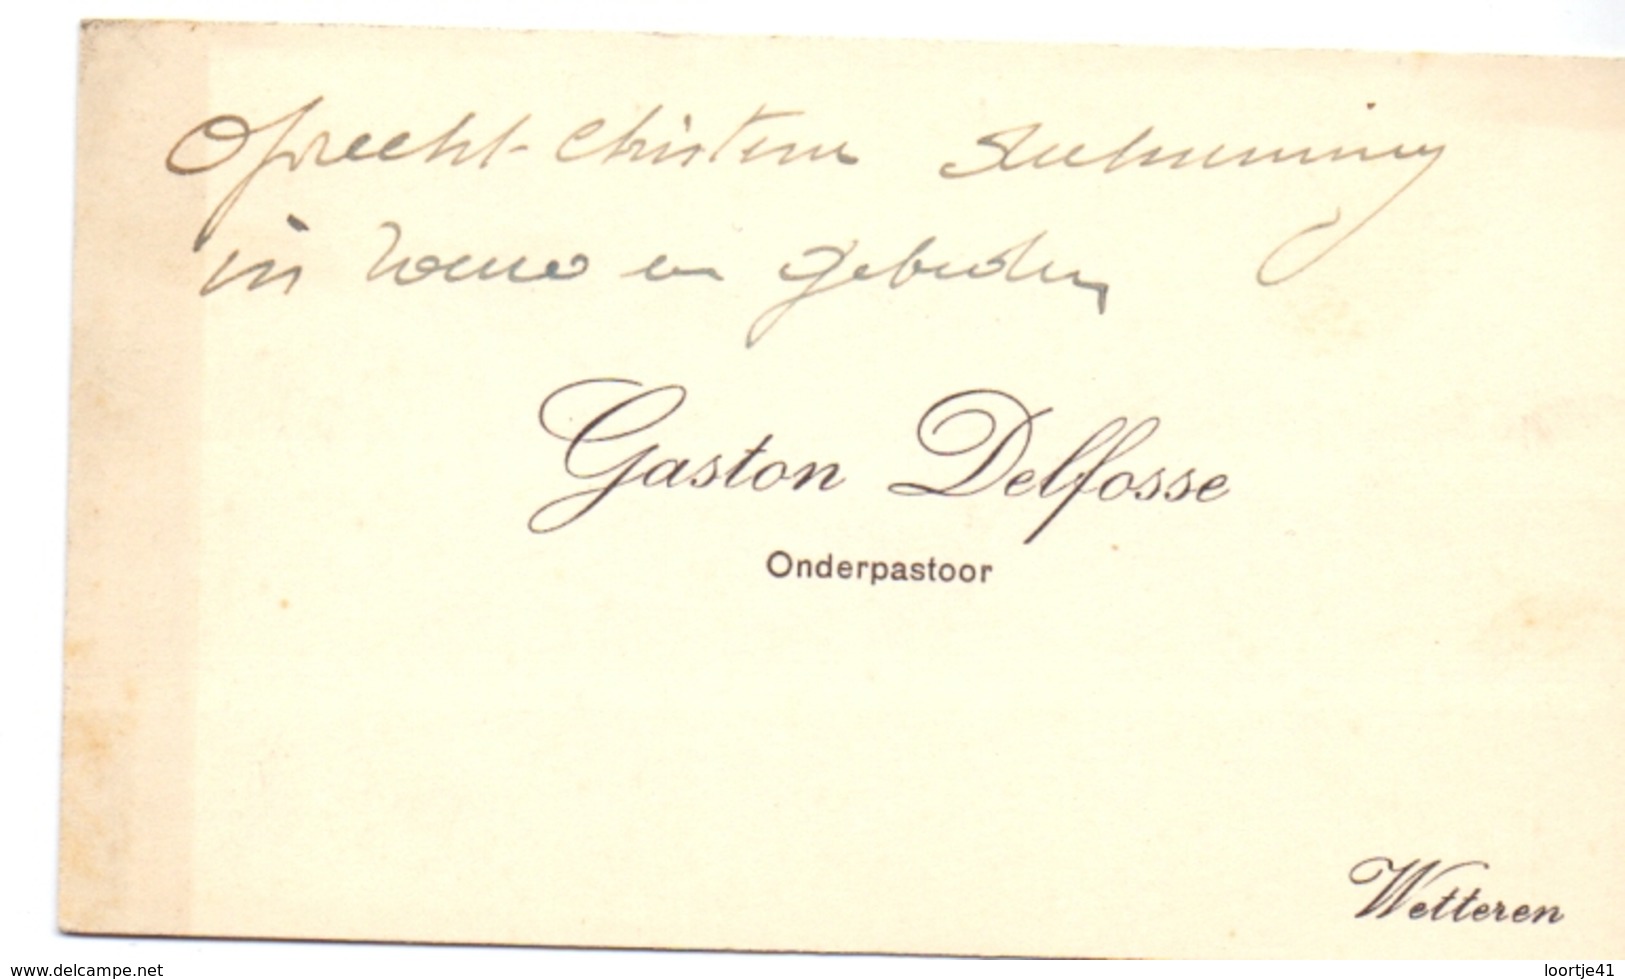 Oprecht-christene deelneming
in rouw en gebeden
Gaston Delfosse
Onderpastoor
Wetteren
www.delcampe.net
loortje41